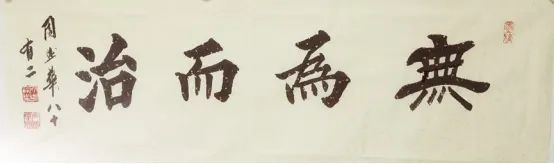 無為而治
周志華八十
有二